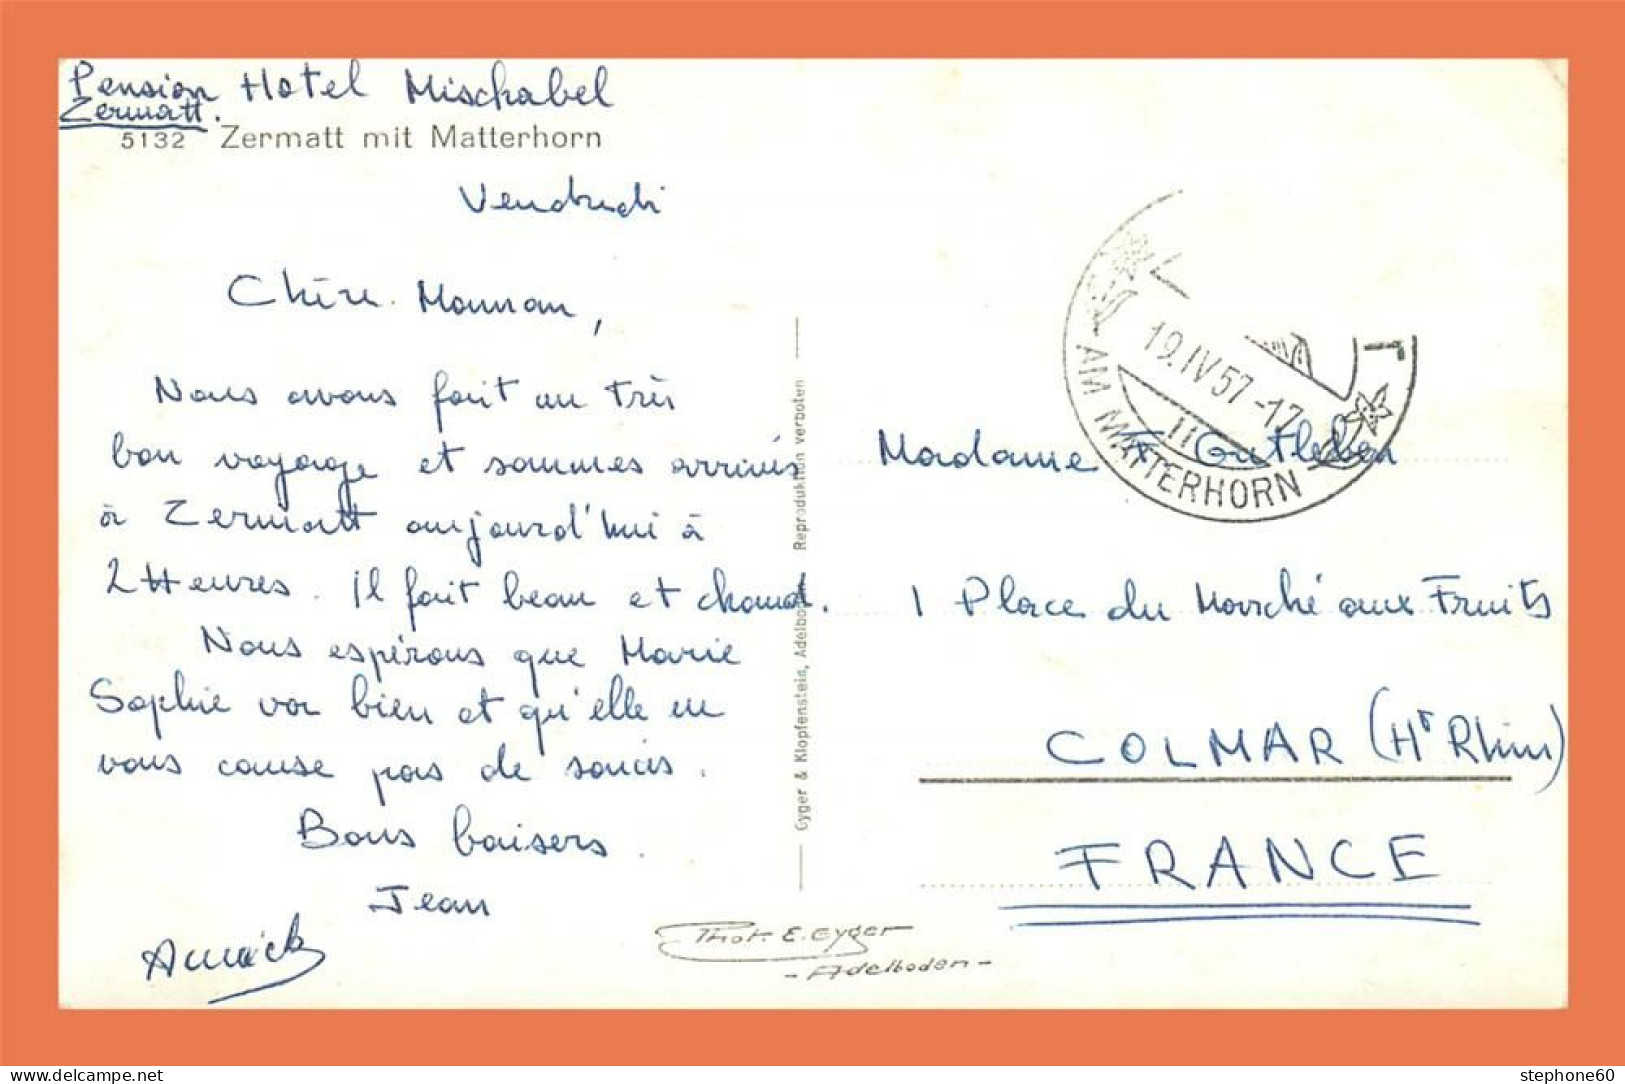 Pension Hotel Mischabel
Zermatt.
5132 Zermatt mit Matterhorn
Vendredi
Chère Maman,
Nous avons fait un très
bon voyage et sommes arrivés
à Zermatt aujourd'hui à
2 Heures. Il fait beau et chaud.
Nous espérons que Marie
Sophie va bien et qu'elle ne
vous cause pas de soucis.
Bons baisers.
Jean
Annick
Gyger & Klopfenstein, Adelboden Reproduktion verboten
Phot. E. Gyger
- Adelboden -
19.IV.57-17
AM MATTERHORN
Madame F Gutleben
1 Place du Marché aux Fruits
COLMAR (Ht Rhin)
FRANCE
delcampe.net
stephone60